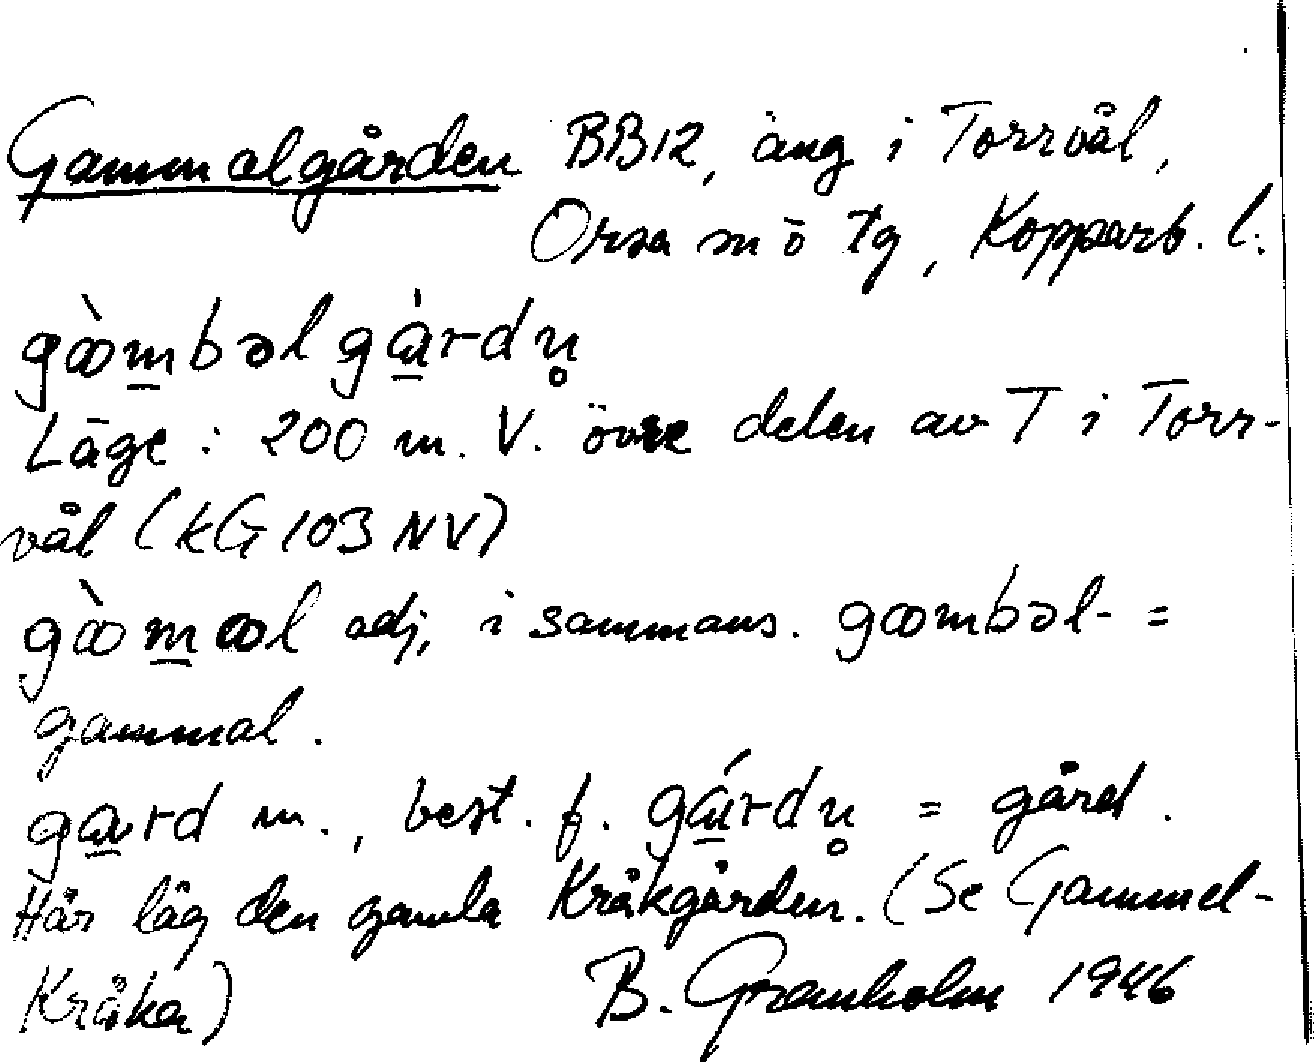 Gammalgården BB12, äng i Torrvål,
Orsa sn ö Tg, Kopparb. l.
gò̀m̲bəlgá̲rdn̥
Läge: 200 m. V. övre delen av T i Torr-
vål (kG 103 NV)
gòm̲ol adj, i sammans. gombəl- =
gammal.
ga̲rd m., best. f. gá̲rdn̥ = gård.
Här låg den gamla Kråkgården. (Se Gammel-
Kråka) B. Granholm 1946